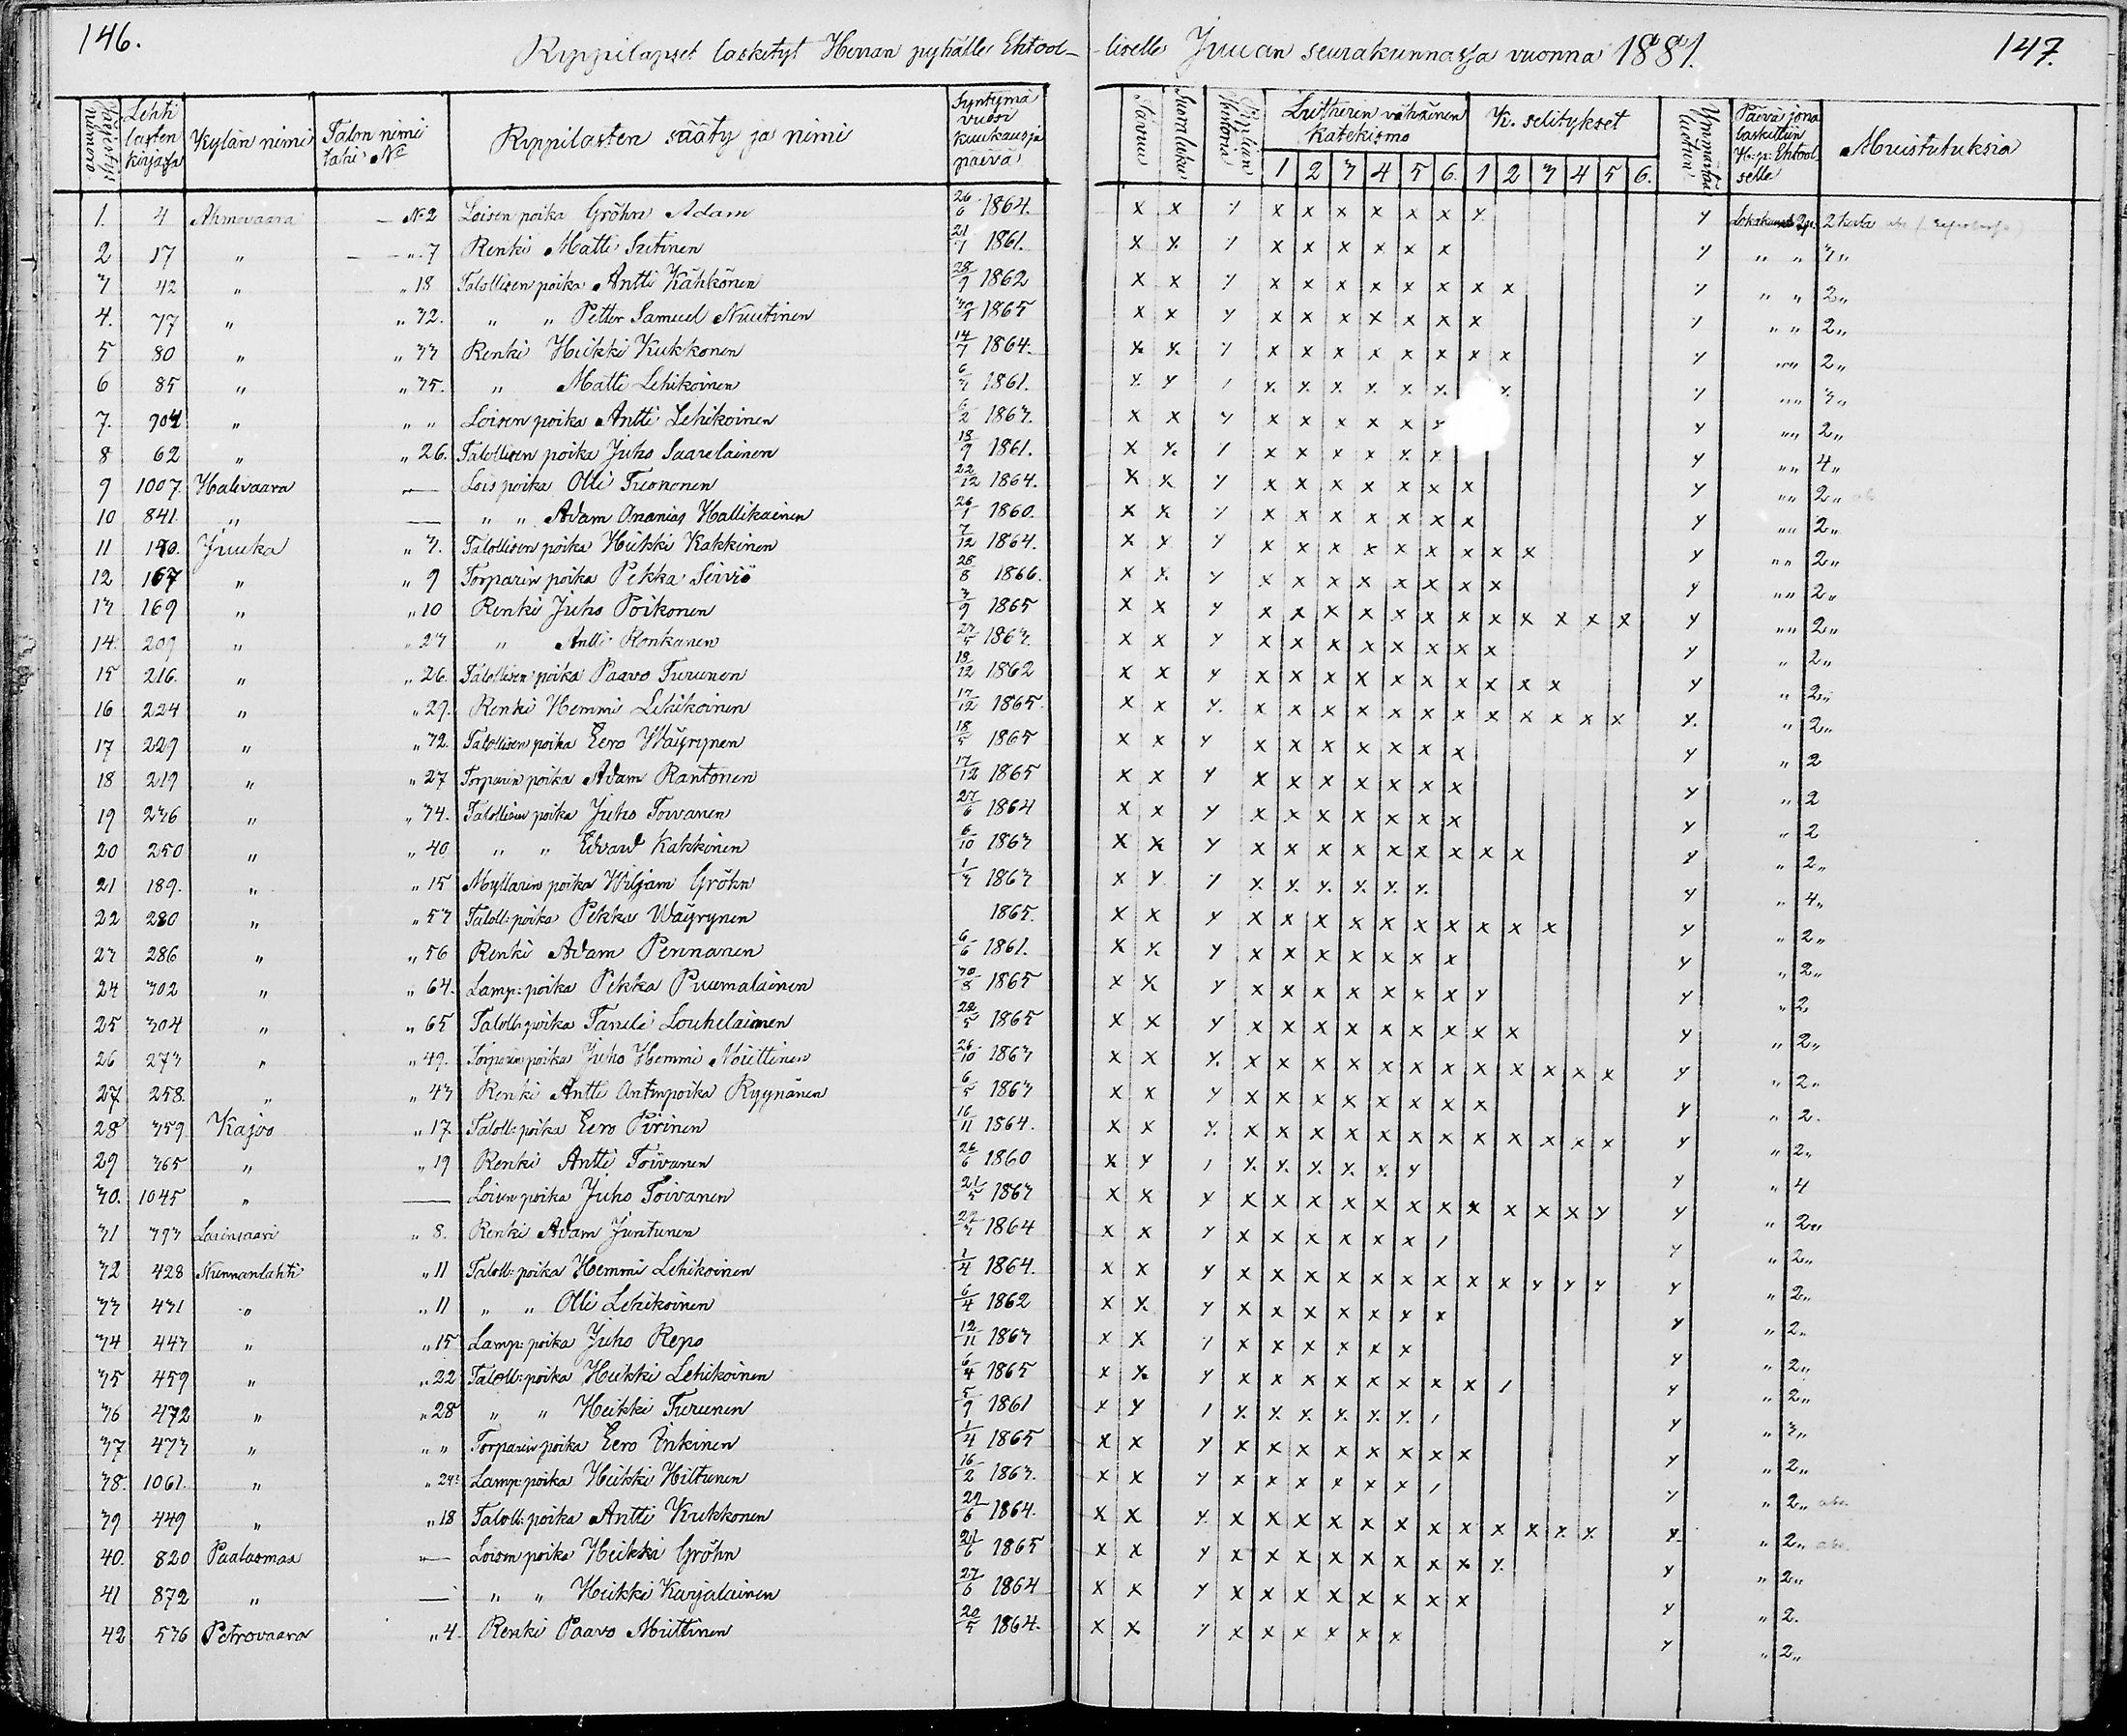 146.
Rippilapset lasketyt Herran pyhälle Ehtool- liselle Juuan seurakunnassa vuonna 1881.
147.
Järjestys numero
Lehti lasten kirjassa
Kylän nimi
Talon nimi tahi No
Rippilasten sääty ja nimi
Syntymä vuosi kuukausi ja päivä
Lutherin vähäinen katekismo
K. selitykset
Päivä jona laskettiin H: p: Ehtool selle
Muistutuksia
1 2 3 4 5 6. 1 2 3 4 5 6.
1. 4 Ahmovaara — No 2 Loisen poika Gröhn Adam 26/6 1864. x x y x x x x x x y y 2 kertaa
2 17 „ — „ 7 Renki Matti Sutinen 21/7 1861. x x y x x x x x x y „ „ 3 „
3 42 „ „ 18 Talollisen poika Antti Kähkönen 28/9 1862 x x y x x x x x x x x y „ „ 2 „
4. 77 „ „ 32. „ „ Petter Samuel Nuutinen 1865 x x y x x x x x x x y „ „ 2 „
5 80 „ „ 33 Renki Heikki Kukkonen 14/7 1864. x x y x x x x x x x x y „ „ 2 „
6 85 „ „ 35. „ Matti Lehikoinen 6/3 1861. x y / x x x x x x x y „ „ 3 „
7. 904 „ „ „ Loisen poika Antti Lehikoinen 6/2 1863. x x y x x x x x y y „ „ 2 „
8 62 „ „ 26. Talollisen poika Juho Saarelainen 18/9 1861. x x y x x x x x x y „ „ 4 „
9 1007. Halivaara — Lois poika Olli Tuononen 22/12 1864. x x y x x x x x x x y „ „ 2 „
10 841. „ — „ „ Adam Ananias Hallikainen 26/1 1860. x x y x x x x x x x y „ „ 2 „
11 150. Juuka „ 3. Talollisen poika Heikki Kakkinen 7/12 1864. x y y x x x x x x x x x y „ „ 2 „
12 167 „ „ 9 Torparin poika Pekka Serviö 25/8 1866. x x y x x x x x x x x y „ „ 2 „
13 169 „ „ 10 Renki Juho Poikonen 3/9 1865 x x y x x x x x x x x x x x x y „ „ 2 „
14. 209 „ „ 23 „ Antti Ronkanen 27/5 1863. x x y x x x x x x x x y „ 2 „
15 216. „ „ 26. Talollisen poika Paavo Turunen 18/12 1862 x x y x x x x x x x x x x y „ 2 „
16 224 „ „ 29. Renki Hemmi Lehikoinen 17/12 1865. x x y x x x x x x x x x x x x y „ 2 „
17 229 „ „ 32. Talollisen poika Eero Wäyrynen 18/5 1865 x x y x x x x x x x y „ 2
18 219 „ „ 27 Torparin poika Adam Rantonen 17/12 1865 x x y x x x x x x x y „ 2
19 236 „ „ 34. Talollisen poika Juho Toivanen 27/6 1864 x x y x x x x x x x y „ 2
20 250 „ „ 40 „ „ Edvard Kakkinen 6/10 1863 x x y x x x x x x x x x y „ 2 „
21 189. „ „ 15 Myllarin poika Wiljam Gröhn 1/3 1863 x y y x x x x x x y „ 4 „
22 280 „ „ 53 Taloll: poika Pekka Wäyrynen 1865. x x y x x x x x x x x x x y „ 2 „
23 286 „ „ 56 Renki Adam Pennanen 6/6 1861. x x y x x x x x x x y „ 2 „
24 302 „ „ 64. Lamp: poika Pekka Puumalainen 30/8 1865 x x y x x x x x x x y y „ 2
25 304 „ „ 65 Taloll: poika Taneli Louhelainen 22/5 1865 x x y x x x x x x x x x y „ 2 „
26 273 „ „ 49. Torparin poika Juho Hemmi Miettinen 26/10 1863 x x y x x x x x x x x x x x x y „ 2 „
27 258. „ „ 43 Renki Antti Antinpoika Ryynänen 6/5 1863 x x y x x x x x x x x y „ 2.
28 359 Kajoo „ 17. Taloll: poika Eero Pirinen 16/11 1864. x x y x x x x x x x x x x x x y „ 2 „
29 365 „ „ 19 Renki Antti Toivanen 26/6 1860 x y / x x x x x y y „ 4
30. 1045 „ — Loisen poika Juho Toivanen 21/5 1863 x x y x x x x x x x x x x x y y „ 2 „
31 393 Larinsaari „ 8. Renki Adam Juntunen 1864 x x y x x x x x x / y „ 2 „
32 428 Nunnanlahti „ 11 Taloll: poika Hemmi Lehikoinen 1/4 1864. x x y x x x x x x x x x y y y y „ 2 „
33 431 „ „ 11 „ „ Olli Lehikoinen 6/4 1862 x x y x x x x x x x y „ 2 „
34 443 „ „ 15 Lamp: poika Juho Repo 12/11 1863 x x y x x x x x x y „ 2 „
35 459 „ „ 22 Taloll: poika Heikki Lehikoinen 6/4 1865 x x y x x x x x x x x / y „ 2 „
36 472 „ „ 28 „ „ Heikki Turunen 5/9 1861 x y / x x x x x x / y „ 3 „
37 473 „ „ „ Torparin poika Eero Inkinen 1/4 1865 x x y x x x x x x x x y „ 2 „
38. 1061. „ „ 24: Lamp: poika Heikki Hiltunen 16/2 1863. x x y x x x x x x / y „ 2 „
39 449 „ „ 18 Taloll: poika Antti Kukkonen 29/6 1864. x x y x x x x x x x x x x x x y „ 2 „
40. 820 Paalasmaa — Loisen poika Heikki Gröhn 21/6 1865 x x y x x x x x x x x y y „ 2 „
41 872 „ — „ „ Heikki Karjalainen 27/6 1864 x x y x x x x x x x x y „ 2.
42 536 Petrovaara „ 4. Renki Paavo Miettinen 20/5 1864. x x y x x x x x x y „ 2 „